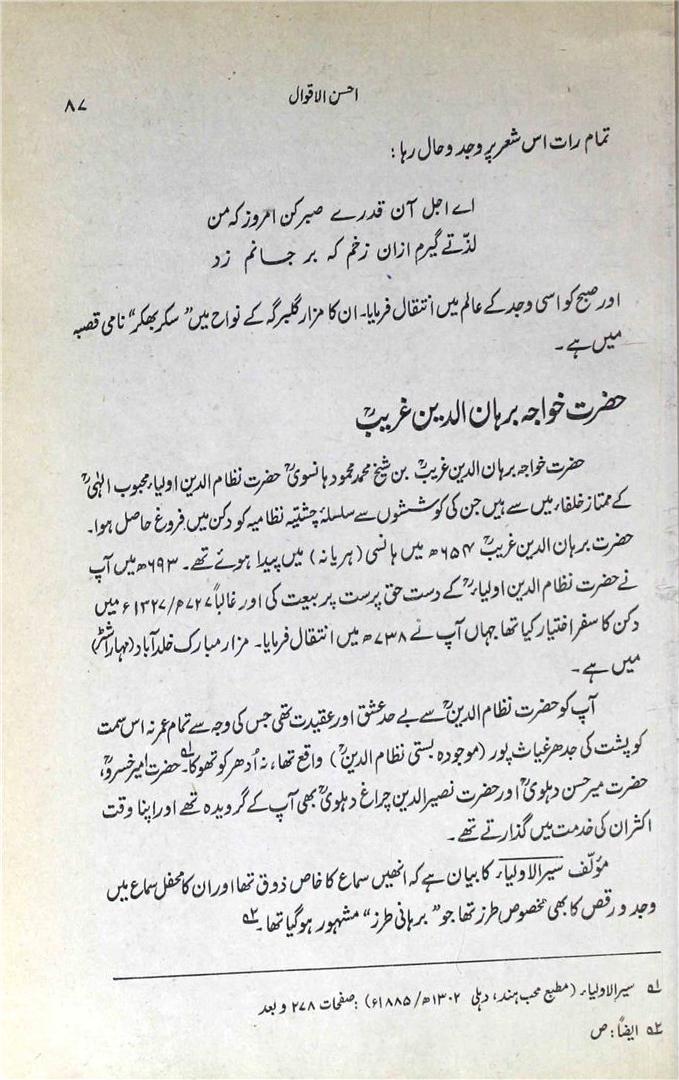 احسن الاقوال
۸۷
تمام رات اس شعر پر وجد و حال رہا:
اے اجل آن قدرے صبر کن امروز کہ من
لذّتے گیرم ازان زخم کہ بر جانم زد
اور صبح کو اسی وجد کے عالم میں انتقال فرمایا۔ ان کا مزار گلبرگہ کے نواح میں ”سکر بھکر“ نامی قصبہ
میں ہے۔
حضرت خواجہ برہان الدین غریبؒ
حضرت خواجہ برہان الدین غریبؒ بن شیخ محمد محمود ہانسویؒ حضرت نظام الدین اولیاء محبوب الٰہیؒ
کے ممتاز خلفاء میں سے ہیں جن کی کوششوں سے سلسلۂ چشتیہ نظامیہ کو دکن میں فروغ حاصل ہوا۔
حضرت برہان الدین غریبؒ ۶۵۴ھ میں ہانسی (ہریانہ) میں پیدا ہوئے تھے۔ ۶۹۳ھ میں آپ
نے حضرت نظام الدین اولیاءؒ کے دست حق پرست پر بیعت کی اور غالباً ۷۲۷ھ/۱۳۲۷ء میں
دکن کا سفر اختیار کیا تھا جہاں آپ نے ۷۳۸ھ میں انتقال فرمایا۔ مزار مبارک خلدآباد (مہاراشٹر)
میں ہے۔
آپ کو حضرت نظام الدینؒ سے بے حد عشق اور عقیدت تھی جس کی وجہ سے تمام عمر نہ اس سمت
کو پشت کی جدھر غیاث پور (موجودہ بستی نظام الدینؒ) واقع تھا، نہ اُدھر کو تھوکا۔؁۱ حضرت امیر خسروؒ،
حضرت میر حسن دہلویؒ اور حضرت نصیر الدین چراغ دہلویؒ بھی آپ کے گرویدہ تھے اور اپنا وقت
اکثر ان کی خدمت میں گذارتے تھے۔
مؤلّف سیر الاولیاء کا بیان ہے کہ انھیں سماع کا خاص ذوق تھا اور ان کا محفل سماع میں
وجد و رقص کا بھی مخصوص طرز تھا جو ”برہانی طرز“ مشہور ہو گیا تھا۔؁۲
؁۱ سیر الاولیاء (مطبع محب ہند، دہلی ۱۳۰۲ھ/۱۸۸۵ء): صفحات ۲۷۸ و بعد
؁۲ ایضاً: ص